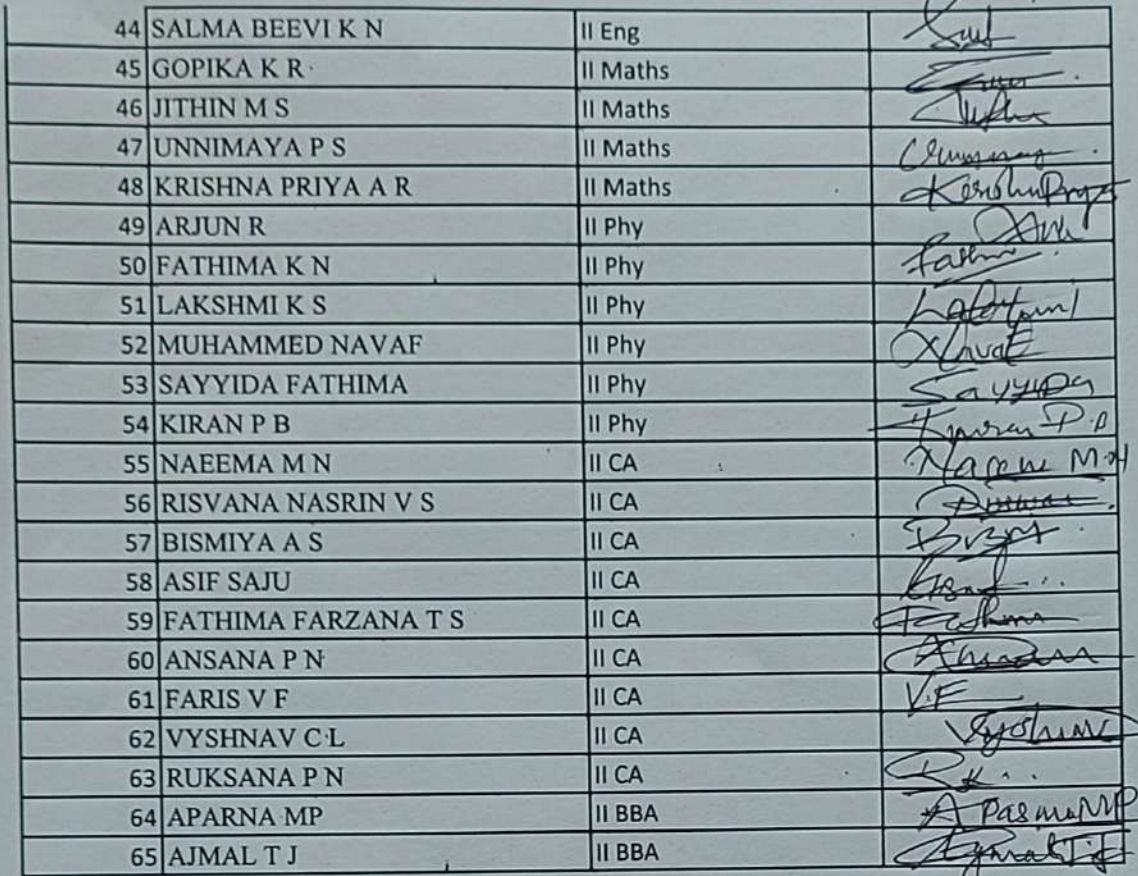 44 SALMA BEEVI K N II Eng
45 GOPIKA K R II Maths
46 JITHIN M S II Maths
47 UNNIMAYA P S II Maths
48 KRISHNA PRIYA A R II Maths
49 ARJUN R II Phy
50 FATHIMA K N II Phy
51 LAKSHMI K S II Phy
52 MUHAMMED NAVAF II Phy
53 SAYYIDA FATHIMA II Phy
54 KIRAN P B II Phy
55 NAEEMA M N II CA
56 RISVANA NASRIN V S II CA
57 BISMIYA A S II CA
58 ASIF SAJU II CA
59 FATHIMA FARZANA T S II CA
60 ANSANA P N II CA
61 FARIS V F II CA V.F
62 VYSHNAV C L II CA
63 RUKSANA P N II CA
64 APARNA MP II BBA
65 AJMAL T J II BBA